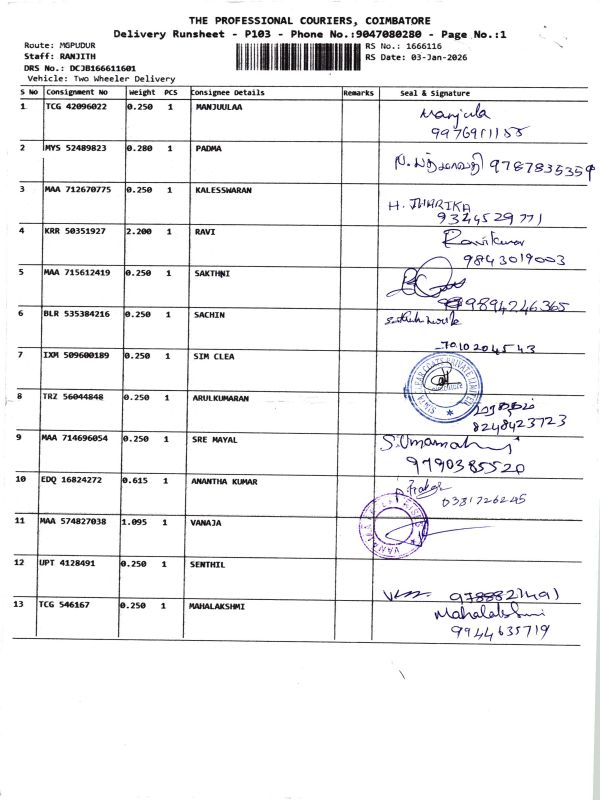 THE PROFESSIONAL COURIERS, COIMBATORE
Delivery Runsheet - P103 - Phone No.:9047080280 - Page No.:1
Route: MGPUDUR
RS No.: 1666116
Staff: RANJITH
RS Date: 03-Jan-2026
DRS No.: DCJB166611601
Vehicle: Two Wheeler Delivery
S No Consignment No Weight PCS Consignee Details Remarks Seal & Signature
1 TCG 42096022 0.250 1 MANJUULAA
Manjula
9976911155
2 MYS 52489823 0.280 1 PADMA
9787835359
3 MAA 712670775 0.250 1 KALESSWARAN
H. JHARIKA
9324529771
4 KRR 50351927 2.200 1 RAVI
Ravikumar
9843019003
5 MAA 715612419 0.250 1 SAKTHNI
9894246365
6 BLR 535384216 0.250 1 SACHIN
7010204543
7 IXM 509600189 0.250 1 SIM CLEA
8 TRZ 56044848 0.250 1 ARULKUMARAN
8248423723
9 MAA 714696054 0.250 1 SRE MAYAL
S. Umamah
9790385520
10 EDQ 16824272 0.615 1 ANANTHA KUMAR
11 MAA 574827038 1.095 1 VANAJA
12 UPT 4128491 0.250 1 SENTHIL
13 TCG 546167 0.250 1 MAHALAKSHMI
Mahalakshmi
9944635719